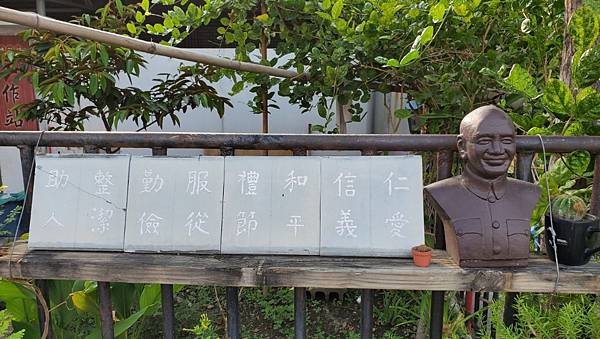 仁愛
信義
和平
禮節
服從
勤儉
整潔
助人
作站